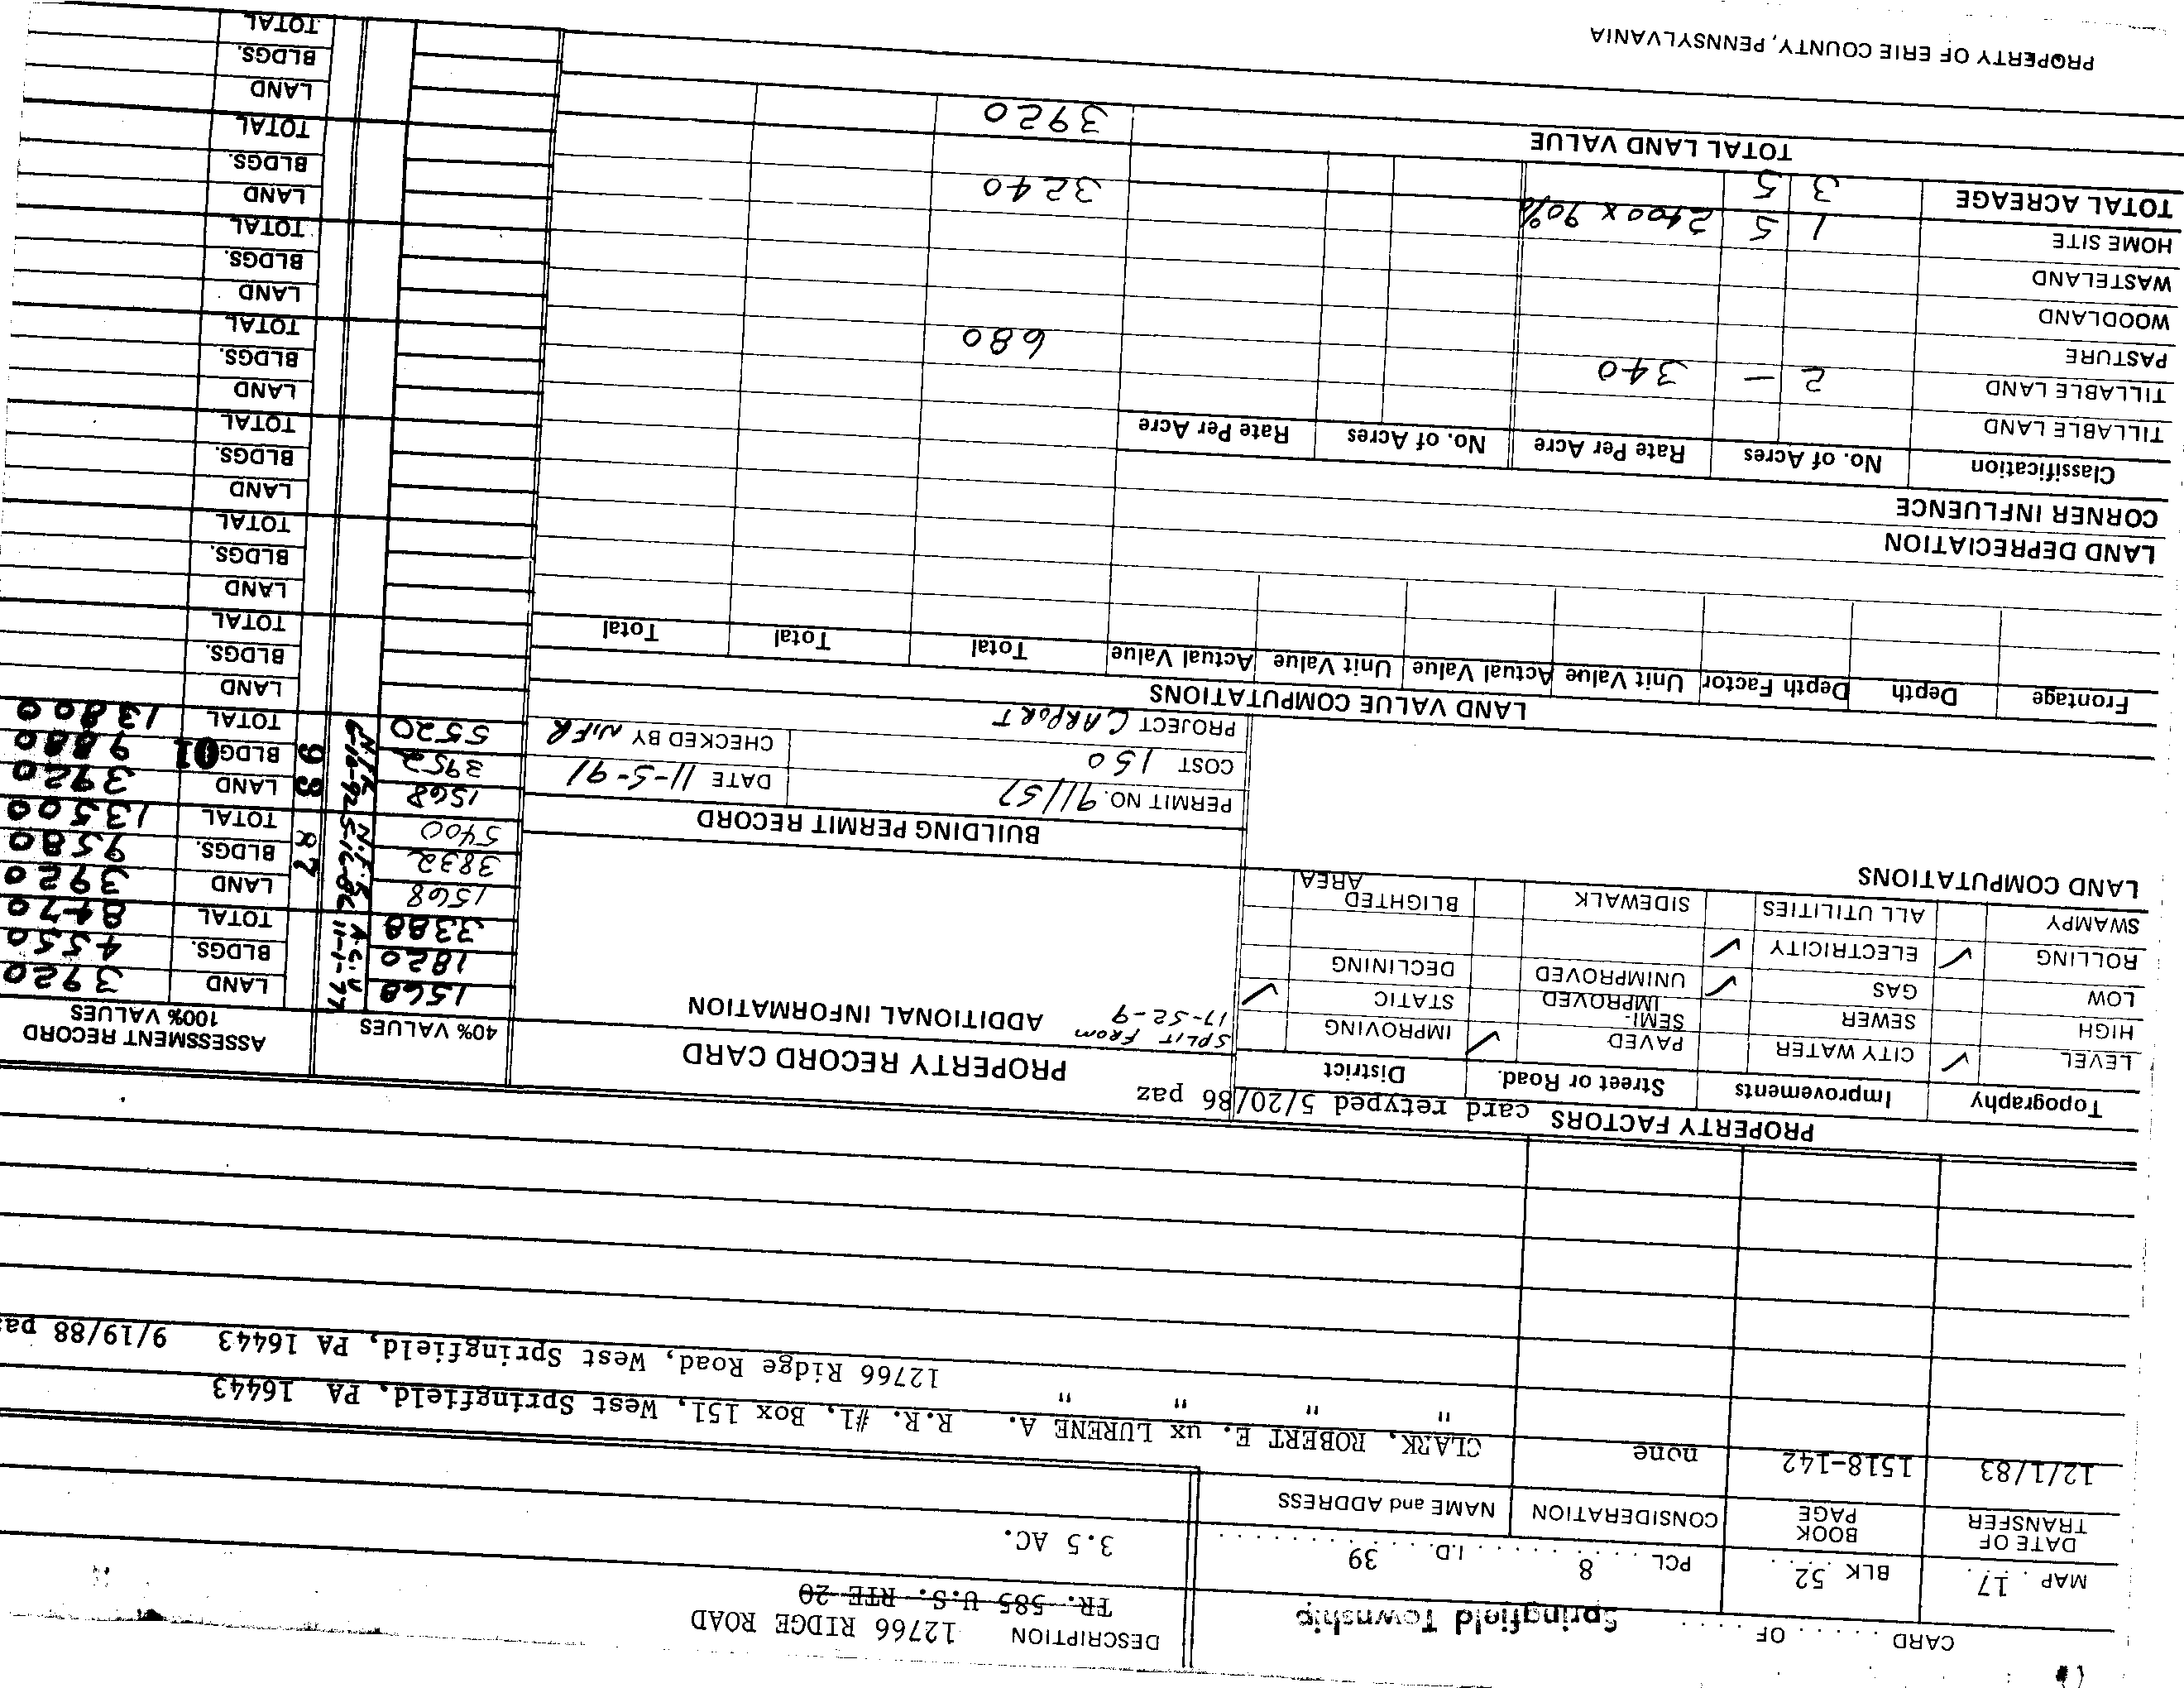 CARD . . . . . OF . . . . .
Springfield Township
DESCRIPTION 12766 RIDGE ROAD
TR. 585 U.S. RTE 20
MAP . 17 . BLK 52 . . . . PCL . . . . 8 . . . . . I.D. . . . 39 . . . . . . . . .
3.5 AC.
DATE OF TRANSFER BOOK PAGE CONSIDERATION NAME and ADDRESS
12/1/83 1518-142 none CLARK, ROBERT E. ux LURENE A. R.R. #1, Box 151, West Springfield, PA 16443
" " " " 12766 Ridge Road, West Springfield, PA 16443 9/19/88 paz
PROPERTY FACTORS card retyped 5/20/86 paz
Topography Improvements Street or Road. District
LEVEL ✓ CITY WATER PAVED ✓ IMPROVING
HIGH SEWER SEMI-IMPROVED STATIC ✓
LOW GAS ✓ UNIMPROVED DECLINING
ROLLING ✓ ELECTRICITY ✓
SWAMPY ALL UTILITIES SIDEWALK BLIGHTED AREA
LAND COMPUTATIONS
PROPERTY RECORD CARD
SPLIT FROM
17-52-9
ADDITIONAL INFORMATION
BUILDING PERMIT RECORD
PERMIT NO. 91157 DATE 11-5-91
COST 150 CHECKED BY N.F.R
PROJECT CARPORT
40% VALUES ASSESSMENT RECORD
100% VALUES
1568 A.C.V. 11-1-77 LAND 3920
1820 BLDGS. 4550
3388 TOTAL 8470
1568 N.F.R. 5-16-86 87 LAND 3920
3832 BLDGS. 9580
5400 TOTAL 13500
1568 N.F.R. 6-16-92 93 LAND 3920
3952 BLDG 01 9880
5520 TOTAL 13800
LAND
BLDGS.
TOTAL
LAND
BLDGS.
TOTAL
LAND
BLDGS.
TOTAL
LAND
BLDGS.
TOTAL
LAND
BLDGS.
TOTAL
LAND
BLDGS.
TOTAL
LAND
BLDGS.
TOTAL
LAND VALUE COMPUTATIONS
Frontage Depth Depth Factor Unit Value Actual Value Unit Value Actual Value Total Total Total
LAND DEPRECIATION
CORNER INFLUENCE
Classification No. of Acres Rate Per Acre No. of Acres Rate Per Acre
TILLABLE LAND
TILLABLE LAND 2 — 340 680
PASTURE
WOODLAND
WASTELAND
HOME SITE 1 5 2400 x 90% 3240
TOTAL ACREAGE 3 5
TOTAL LAND VALUE 3920
PROPERTY OF ERIE COUNTY, PENNSYLVANIA